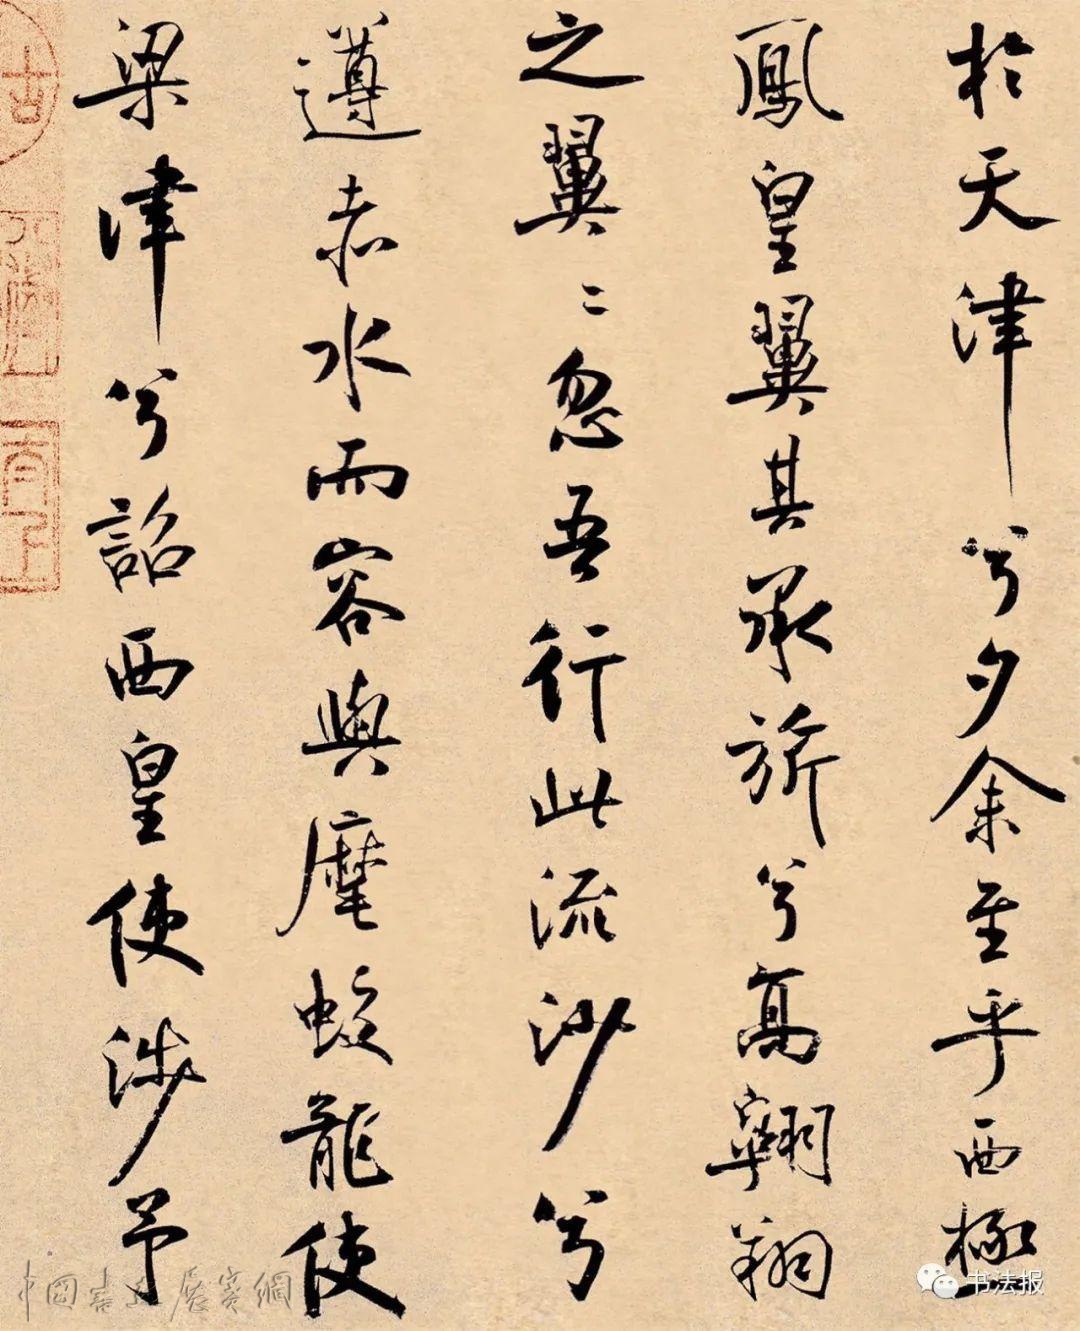 於天津兮夕余至乎西極
鳳皇翼其承旂兮高翱翔
之翼〻忽吾行此流沙兮
遵赤水而容與麾蛟龍使
梁津兮詔西皇使涉予
中國書法展賽網
书法报